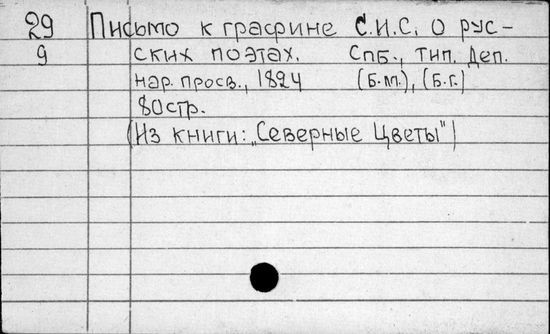 29 Письмо к графине С.И.С. о рус-
9 ских поэтах. Спб., тип. Деп.
нар. просв., 1824 (Б.м.), (Б.г.)
80стр.
(Из книги: „Северные Цветы")